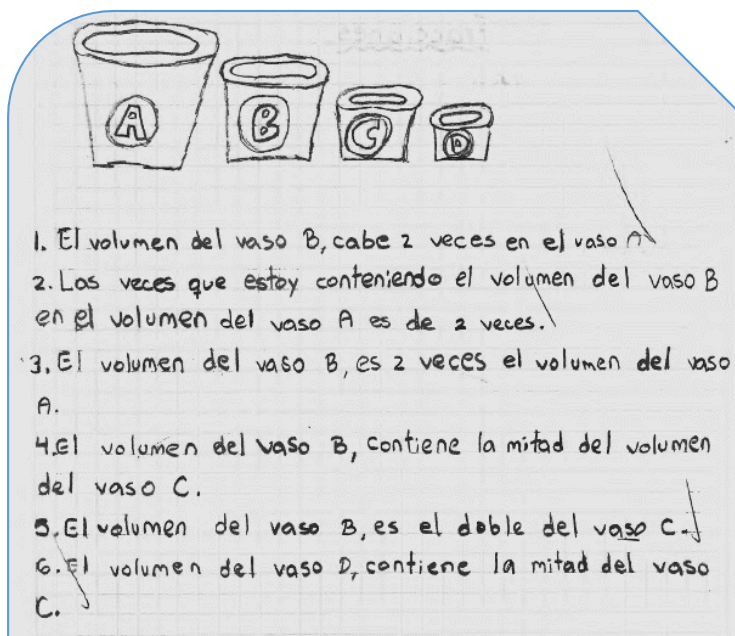 A B C D
1. El volumen del vaso B, cabe 2 veces en el vaso A
2. Las veces que estoy conteniendo el volumen del vaso B
en el volumen del vaso A es de 2 veces.
3. El volumen del vaso B, es 2 veces el volumen del vaso
A.
4. El volumen del vaso B, contiene la mitad del volumen
del vaso C.
5. El volumen del vaso B, es el doble del vaso C.
6. El volumen del vaso D, contiene la mitad del vaso
C.